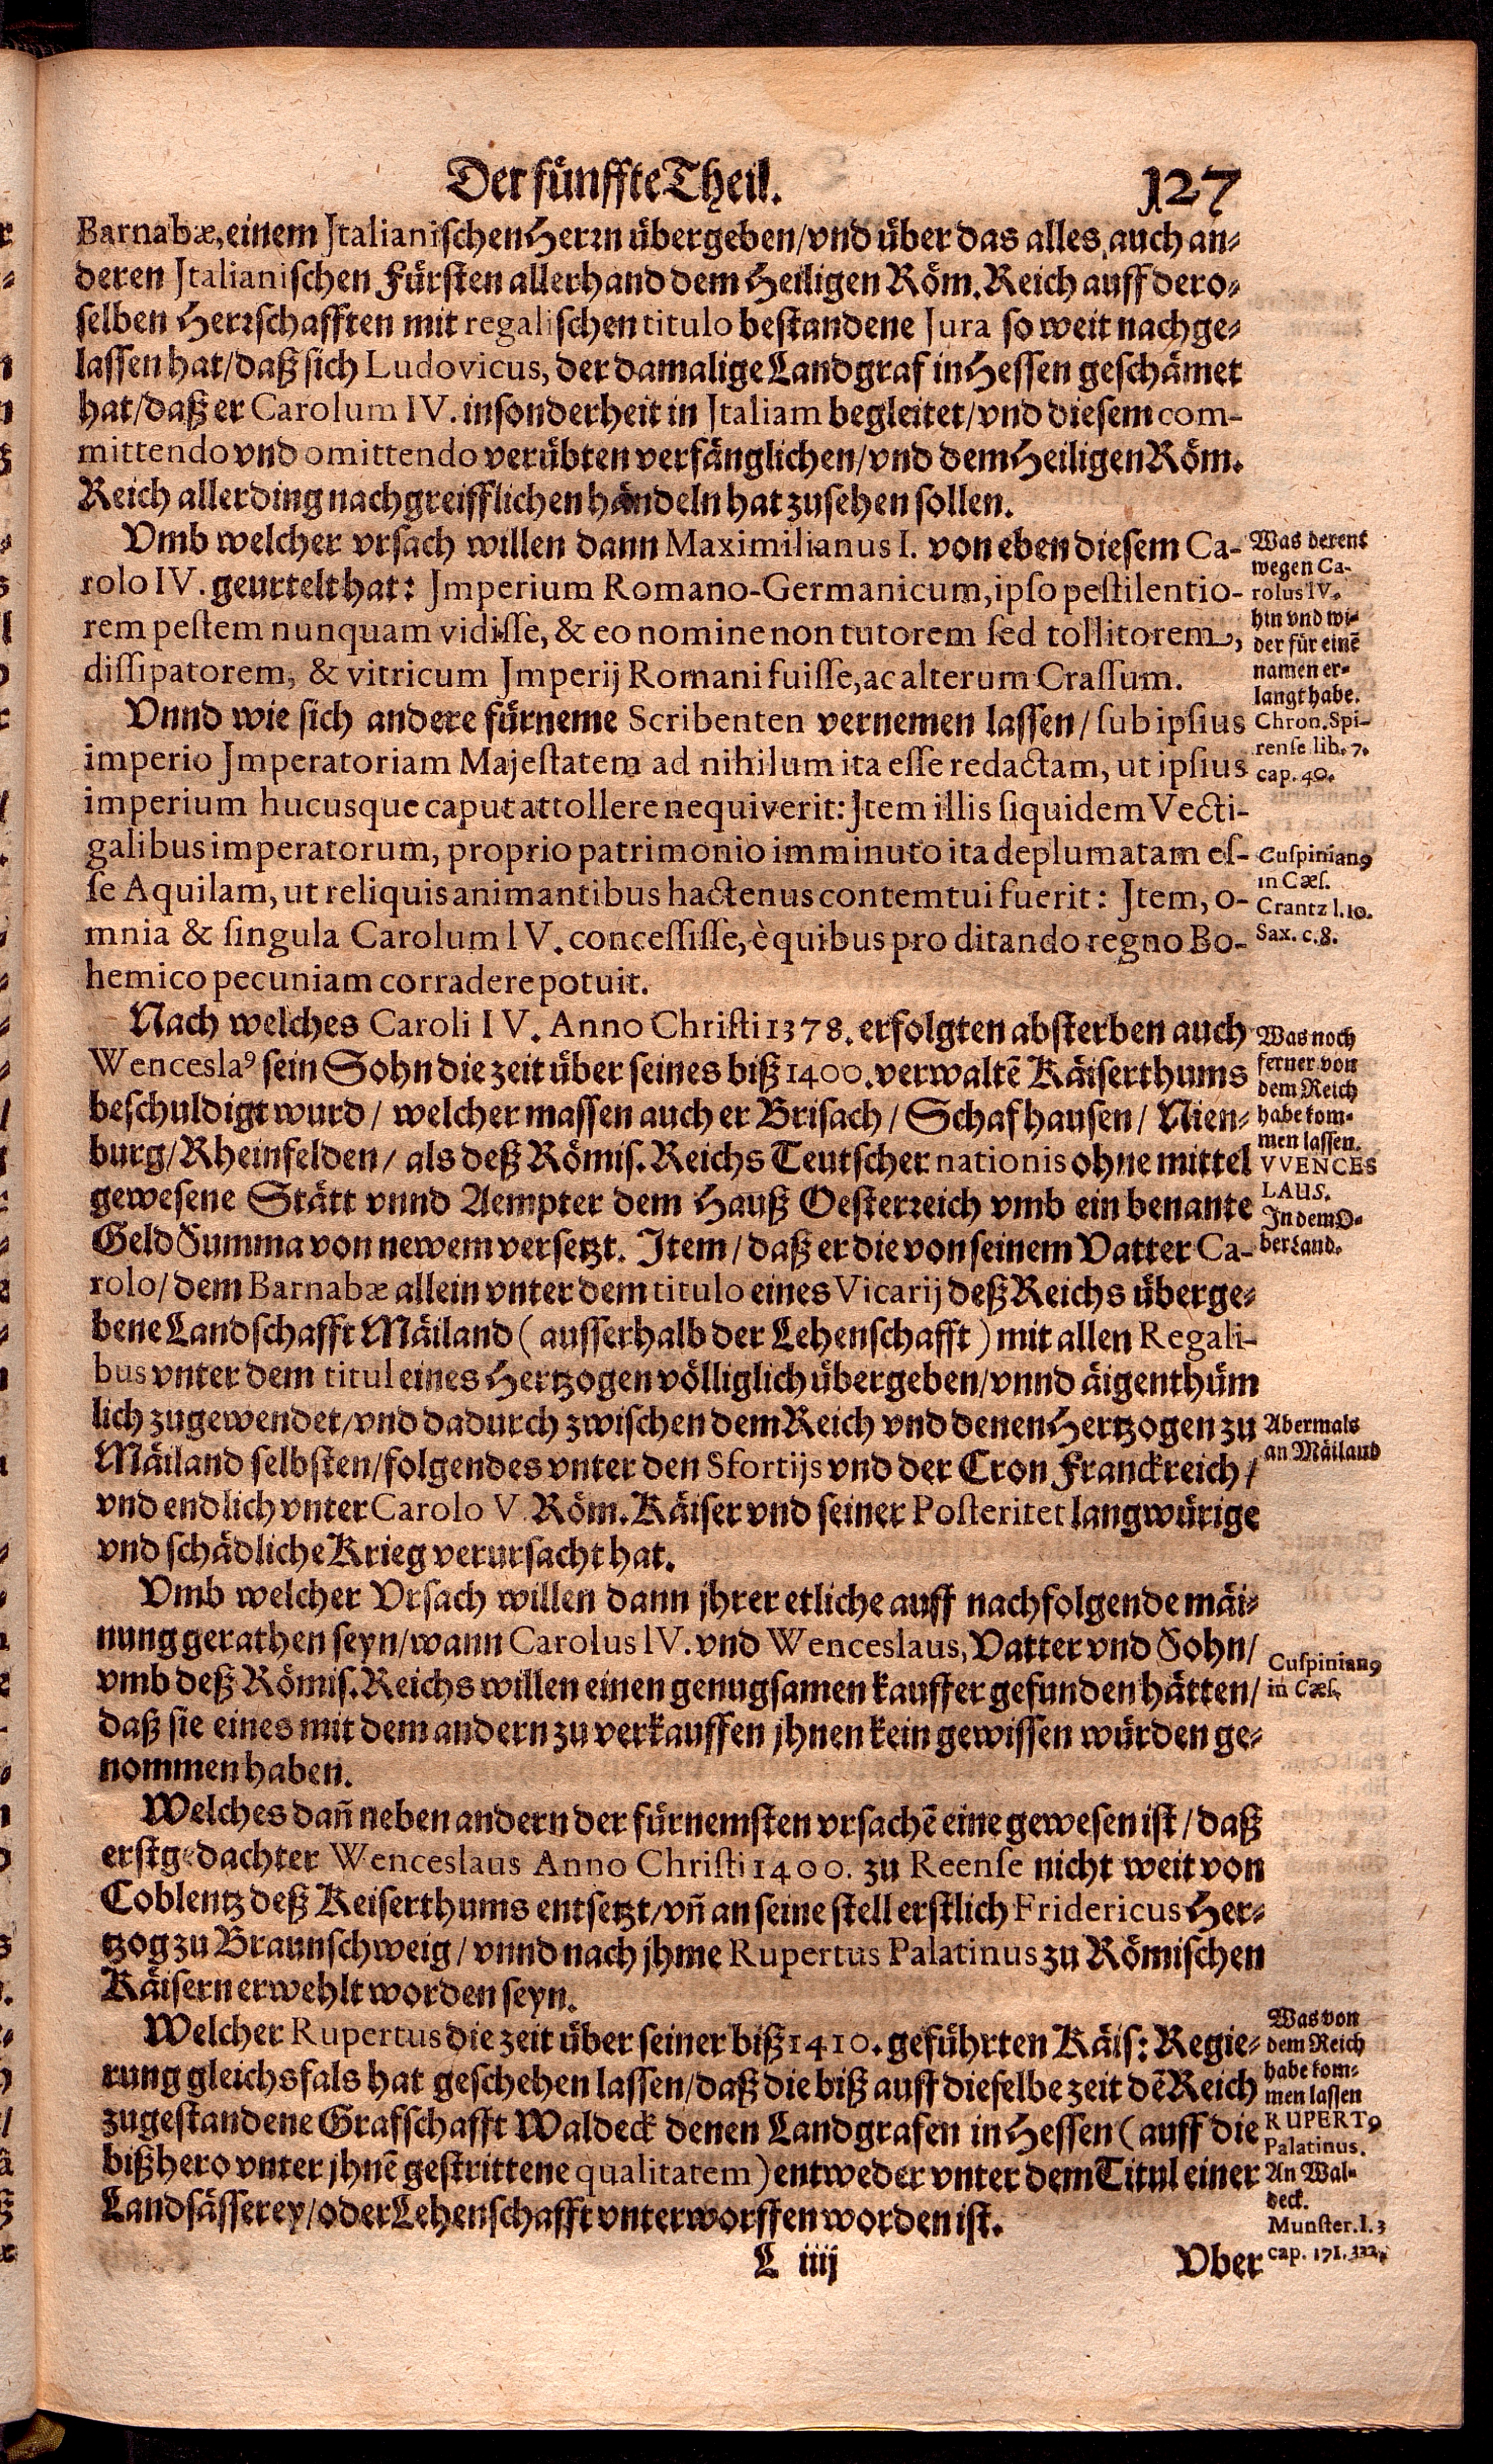 Der fünffte Theil. 127
Barnabæ, einem Jtalianischen Herrn übergeben/vnd über das alles auch an-
deren Jtalianischen Fürsten allerhand dem Heiligen Röm. Reich auff dero-
selben Herrschafften mit regalischen titulo bestandene Jura so weit nachge-
lassen hat/daß sich Ludovicus, der damalige Landgraf in Hessen geschämet
hat/daß er Carolum IV. insonderheit in Jtaliam begleitet/vnd diesem com-
mittendo vnd omittendo verübten verfänglichen/vnd dem Heiligen Röm.
Reich allerding nachgreifflichen händeln hat zusehen sollen.
Vmb welcher vrsach willen dann Maximilianus I. von eben diesem Ca-
rolo IV. geurtelt hat: Jmperium Romano-Germanicum, ipso pestilentio-
rem pestem nunquam vidisse, & eo nomine non tutorem sed tollitorem,
dissipatorem, & vitricum Jmperij Romani fuisse, ac alterum Crassum.
Was derent
wegen Ca-
rolus IV.
hin vnd wi-
der für einẽ
namen er-
langt habe.
Vnnd wie sich andere fürneme Scribenten vernemen lassen/ sub ipsius
imperio Jmperatoriam Majestatem ad nihilum ita esse redactam, ut ipsius
imperium hucusque caput attollere nequiverit: Jtem illis siquidem Vecti-
galibus imperatorum, proprio patrimonio imminuto ita deplumatam es-
se Aquilam, ut reliquis animantibus hactenus contemtui fuerit: Jtem, o-
mnia & singula Carolum IV. concessisse, è quibus pro ditando regno Bo-
hemico pecuniam corradere potuit.
Chron. Spi-
rense lib. 7.
cap. 40.
Cuspinianꝰ
in Cæs.
Crantz l. 10.
Sax. c. 8.
Nach welches Caroli IV. Anno Christi 1378. erfolgten absterben auch
Wenceslaꝰ sein Sohn die zeit über seines biß 1400. verwaltẽ Käiserthums
beschuldigt wurd/ welcher massen auch er Brisach/ Schafhausen/ Nien-
burg/Rheinfelden/ als deß Römis. Reichs Teutscher nationis ohne mittel
gewesene Stätt vnnd Aempter dem Hauß Oesterreich vmb ein benante
Geld Summa von newem versetzt. Jtem/ daß er die von seinem Vatter Ca-
rolo/ dem Barnabæ allein vnter dem titulo eines Vicarij deß Reichs überge-
bene Landschafft Mäiland (ausserhalb der Lehenschafft) mit allen Regali-
bus vnter dem titul eines Hertzogen völliglich übergeben/vnnd äigenthüm
lich zugewendet/vnd dadurch zwischen dem Reich vnd denen Hertzogen zu
Mäiland selbsten/folgendes vnter den Sfortijs vnd der Cron Franckreich/
vnd endlich vnter Carolo V. Röm. Käiser vnd seiner Posteritet langwürige
vnd schädliche Krieg verursacht hat.
Was noch
ferner von
dem Reich
habe kom-
men lassen.
VVENCES
LAUS.
Jn dem O-
berland.
Abermals
an Mäiland
Vmb welcher Vrsach willen dann jhrer etliche auff nachfolgende mäi-
nung gerathen seyn/wann Carolus IV. vnd Wenceslaus, Vatter vnd Sohn/
vmb deß Römis. Reichs willen einen genugsamen kauffer gefunden hätten/
daß sie eines mit dem andern zu verkauffen jhnen kein gewissen würden ge-
nommen haben.
Cuspinianꝰ
in Cæs.
Welches dañ neben andern der fürnemsten vrsachẽ eine gewesen ist/ daß
erstgedachter Wenceslaus Anno Christi 1400. zu Reense nicht weit von
Coblentz deß Keiserthums entsetzt/vñ an seine stell erstlich Fridericus Her-
tzog zu Braunschweig/ vnnd nach jhme Rupertus Palatinus zu Römischen
Käisern erwehlt worden seyn.
Welcher Rupertus die zeit über seiner biß 1410. geführten Käis: Regie-
rung gleichsfals hat geschehen lassen/daß die biß auff dieselbe zeit dẽ Reich
zugestandene Grafschafft Waldeck denen Landgrafen in Hessen (auff die
bißhero vnter jhnẽ gestrittene qualitatem) entweder vnter dem Titul einer
Landsässerey/oder Lehenschafft vnterworffen worden ist.
Was von
dem Reich
habe kom-
men lassen
RUPERTꝰ
Palatinus.
An Wal-
deck.
Munster. l. 3
cap. 171. 332.
L iiij Vber